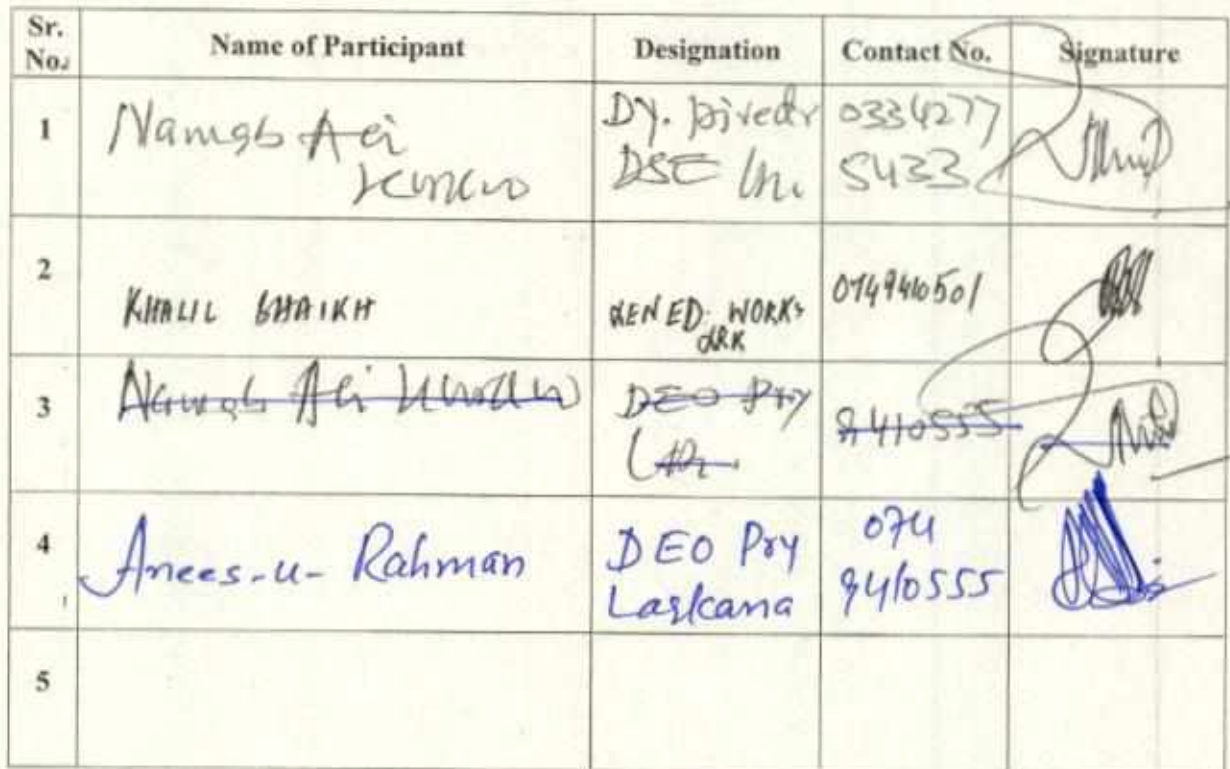 Sr. No. Name of Participant Designation Contact No. Signature
1 Nawab Ali Dy. Director 0334277
DSE 5433
2 KHALIL SHAIKH XEN ED. WORKS 0749410501
LRK
3 Nawab Ali DEO Pry 9410555
4 Anees-u- Rahman DEO Pry 074
Larkana 9410555
5